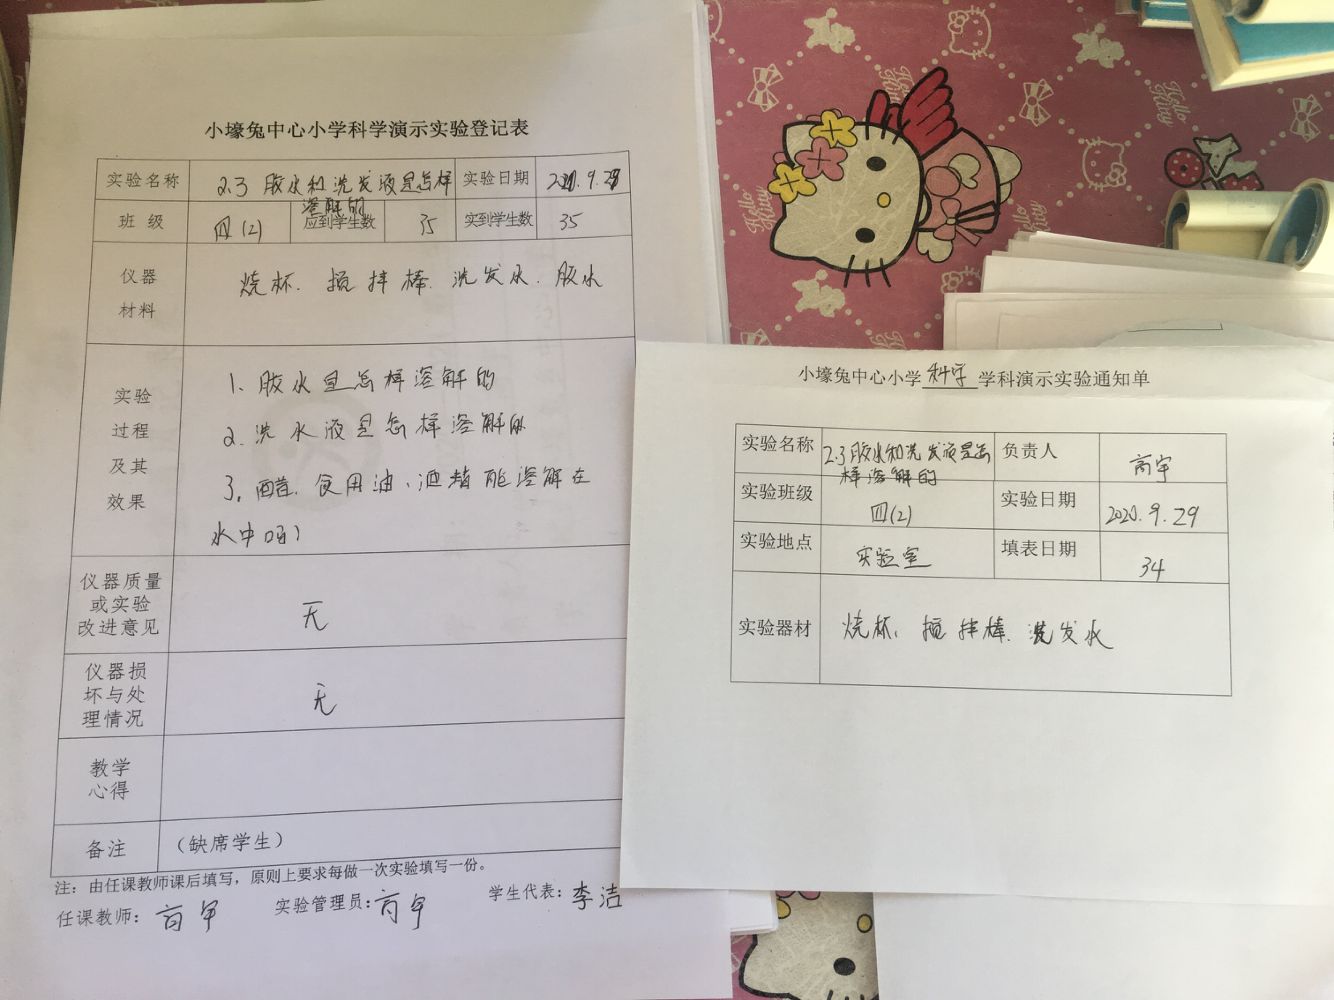 小壕兔中心小学科学演示实验登记表
实验名称 2.3 胶水和洗发液是怎样溶解的 实验日期 2020.9.29
班 级 四(2) 应到学生数 35 实到学生数 35
仪器材料 烧杯、搅拌棒、洗发水、胶水
实验过程及其效果
1、胶水是怎样溶解的
2、洗水液是怎样溶解的
3、醋、食用油、酒精能溶解在
水中吗?
仪器质量或实验改进意见 无
仪器损坏与处理情况 无
教学心得
备注 (缺席学生)
注：由任课教师课后填写，原则上要求每做一次实验填写一份。
任课教师： 实验管理员： 学生代表：李洁
小壕兔中心小学科学学科演示实验通知单
实验名称 2.3胶水和洗发液是怎样溶解的 负责人
实验班级 四(2) 实验日期 2020.9.29
实验地点 实验室 填表日期 34
实验器材 烧杯、搅拌棒、洗发水
Hello Kitty
Hello Kitty
Hello Kitty